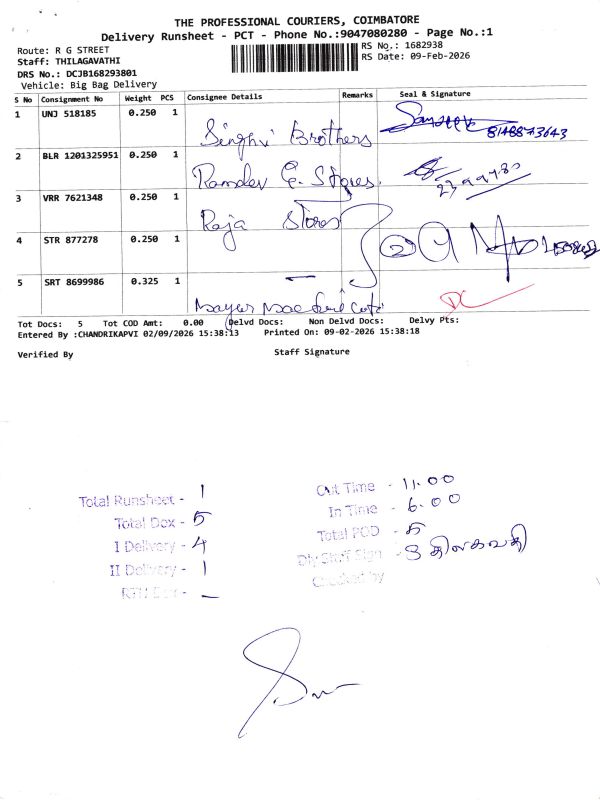 THE PROFESSIONAL COURIERS, COIMBATORE
Delivery Runsheet - PCT - Phone No.:9047080280 - Page No.:1
Route: R G STREET
RS No.: 1682938
Staff: THILAGAVATHI
RS Date: 09-Feb-2026
DRS No.: DCJB168293801
Vehicle: Big Bag Delivery
S No Consignment No Weight PCS Consignee Details Remarks Seal & Signature
1 UNJ 518185 0.250 1 Singhvi Brothers
2 BLR 1201325951 0.250 1 Ramdev G. Stores.
3 VRR 7621348 0.250 1 Raja Stores
4 STR 877278 0.250 1 —
5 SRT 8699986 0.325 1
Tot Docs: 5 Tot COD Amt: 0.00 Delvd Docs: Non Delvd Docs: Delvy Pts:
Entered By :CHANDRIKAPVI 02/09/2026 15:38:13 Printed On: 09-02-2026 15:38:18
Verified By Staff Signature
Total Runsheet - 1
Total Dox - 5
I Delivery - 4
II Delivery - 1
Out Time - 11.00
In Time - 6.00
Total POD - 5
Dly Staff Sign - S திலகவதி
Checked by